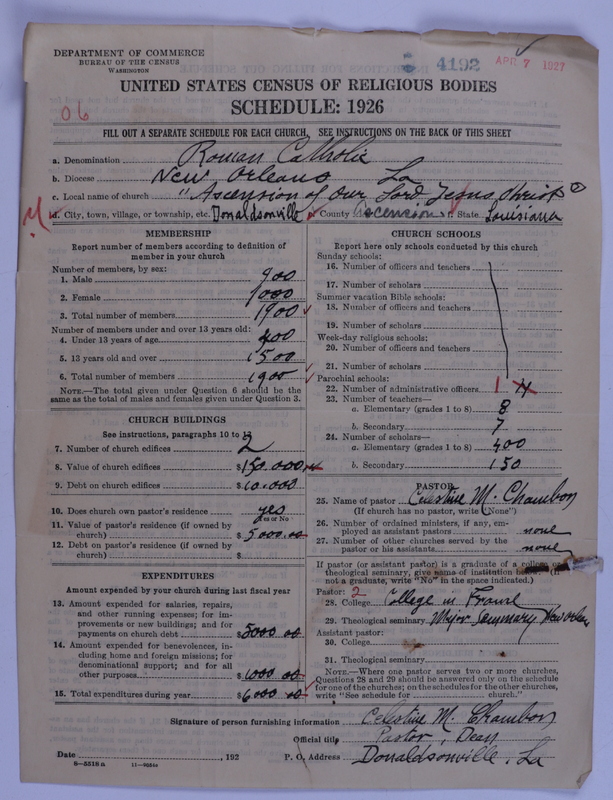 DEPARTMENT OF COMMERCE
BUREAU OF THE CENSUS
WASHINGTON
4192
APR 7 1927
UNITED STATES CENSUS OF RELIGIOUS BODIES
SCHEDULE: 1926
06
FILL OUT A SEPARATE SCHEDULE FOR EACH CHURCH. SEE INSTRUCTIONS ON THE BACK OF THIS SHEET
a. Denomination Roman Catholic
b. Diocese New Orleans La
c. Local name of church "Ascension of Our Lord Jesus Christ"
d. City, town, village, or township, etc. Donaldsonville e. County Ascension f. State Louisiana
MEMBERSHIP
Report number of members according to definition of
member in your church
Number of members, by sex:
1. Male 900
2. Female 1000
3. Total number of members 1900
Number of members under and over 13 years old:
4. Under 13 years of age 400
5. 13 years old and over 1500
6. Total number of members 1900
NOTE.—The total given under Question 6 should be the
same as the total of males and females given under Question 3.
CHURCH BUILDINGS
See instructions, paragraphs 10 to 12
7. Number of church edifices 2
8. Value of church edifices $150.000
9. Debt on church edifices $10.000
10. Does church own pastor's residence? yes
Yes or No
11. Value of pastor's residence (if owned by
church) $5000.00
12. Debt on pastor's residence (if owned by
church) $
EXPENDITURES
Amount expended by your church during last fiscal year
13. Amount expended for salaries, repairs,
and other running expenses; for im-
provements or new buildings; and for
payments on church debt $5000 00
14. Amount expended for benevolences, in-
cluding home and foreign missions; for
denominational support; and for all
other purposes $1000 00
15. Total expenditures during year $6000 00
CHURCH SCHOOLS
Report here only schools conducted by this church
Sunday schools:
16. Number of officers and teachers
17. Number of scholars
Summer vacation Bible schools:
18. Number of officers and teachers
19. Number of scholars
Week-day religious schools:
20. Number of officers and teachers
21. Number of scholars
Parochial schools:
22. Number of administrative officers 1
23. Number of teachers—
a. Elementary (grades 1 to 8) 8
b. Secondary 7
24. Number of scholars—
a. Elementary (grades 1 to 8) 400
b. Secondary 150
PASTOR
25. Name of pastor Celestine M. Chambon
(If church has no pastor, write "None")
26. Number of ordained ministers, if any, em-
ployed as assistant pastors none
27. Number of other churches served by the
pastor or his assistants none
If pastor (or assistant pastor) is a graduate of a college or
theological seminary, give name of institution below. (If
not a graduate, write "No" in the space indicated.)
Pastor: 2
28. College College in France
29. Theological seminary Major Seminary New Orleans
Assistant pastor:
30. College
31. Theological seminary
NOTE.—Where one pastor serves two or more churches,
Questions 28 and 29 should be answered only on the schedule
for one of the churches; on the schedules for the other churches,
write "See schedule for church."
Signature of person furnishing information Celestine M. Chambon
Official title Pastor, Dean
Date , 192 P. O. Address Donaldsonville, La
8—5518a 11—9524a